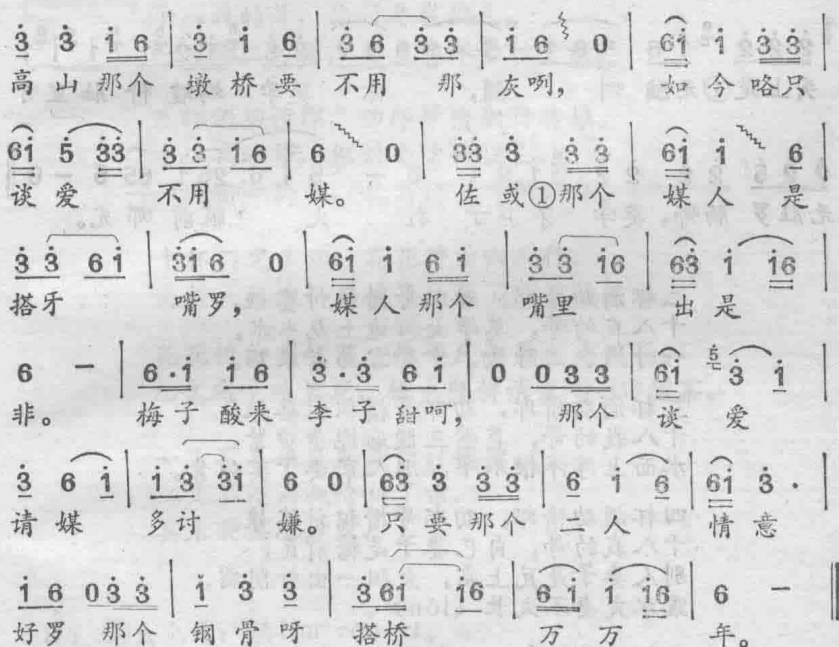 3 3 1 6 | 3 1 6 | 3 6 3 3 | 1 6 0 | 6 1 1 3 3 |
高山那个 墩桥要 不用 那 灰咧, 如今咯只
6 1 5 3 3 | 3 3 1 6 | 6 0 | 3 3 3 3 3 | 6 1 1 6 |
谈爱 不用 媒。 佐或①那个 媒人是
3 3 6 1 | 3 1 6 0 | 6 1 1 6 1 | 3 3 1 6 | 6 3 1 1 6 |
搭牙 嘴罗, 媒人那个 嘴里 出是
6 - | 6 · 1 1 6 | 3 · 3 6 1 | 0 0 3 3 | 6 1 5 3 1 |
非。 梅子酸来 李子甜呵, 那个 谈爱
3 6 1 | 1 3 3 1 | 6 0 | 6 3 3 3 3 | 6 1 6 | 6 1 3 · |
请媒 多讨 嫌。 只要那个 二人 情意
1 6 0 3 3 | 1 3 3 | 3 6 1 1 6 | 6 1 1 1 6 | 6 - ‖
好罗 那个 钢骨呀 搭桥 万万 年。